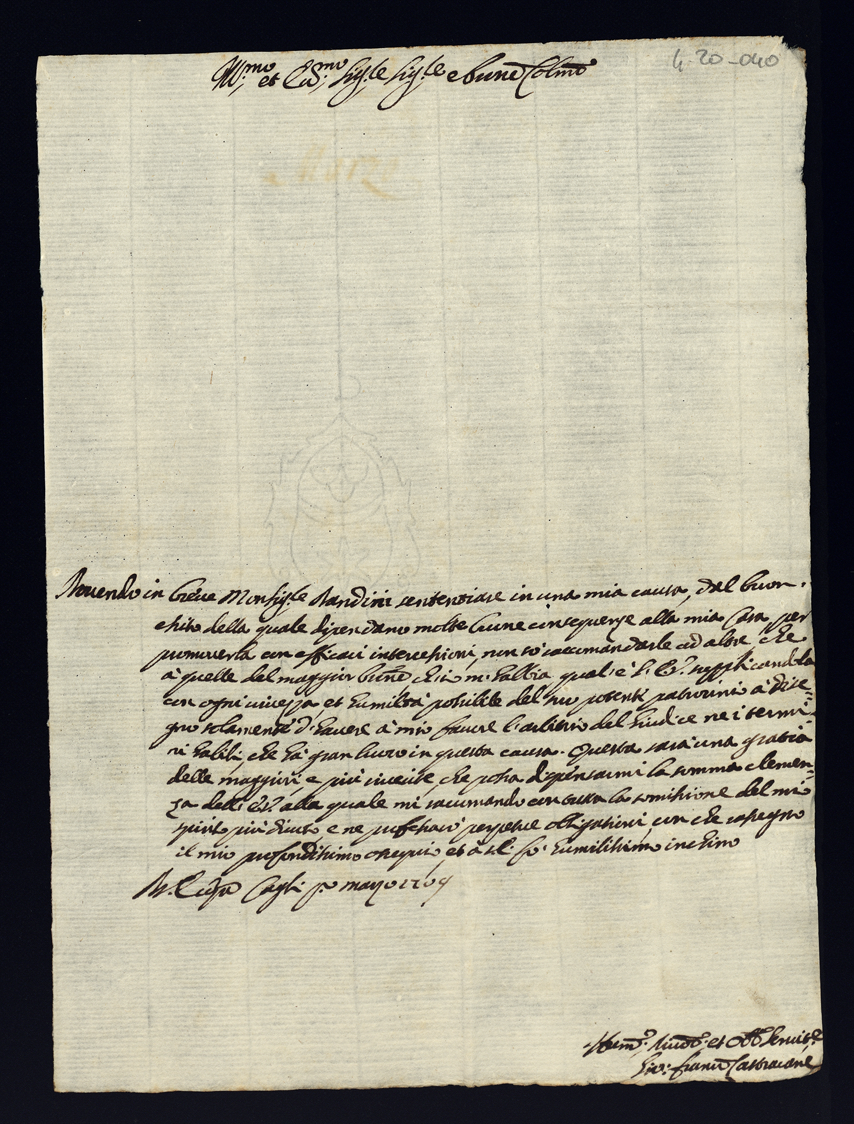 4-20-040
Ill:mo et Ecc:mo Sig:re Sig:re e Prone Colmo
Dovendo in breve Monsig:re Bandini sentenziare in una mia causa, dal buon
esito della quale dipendano molte buone conseguenze alla mia Casa per
promoverla con efficaci intercessioni, non sò raccomandarle ad altre che
à quelle del maggior Prone ch'io m'habbia qual'è V: E: supplicandola
con ogni vivezza et humiltà possibile del suo potente patrocinio à dise=
gno solamente d'havere à mio favore l'arbitrio del Giudice ne i termi=
ni habili, che hà gran luoco in questa causa. Questa sarà una gratia
delle maggiori, e più vivente, che possa dispensarmi la somma clemen=
za dell'E: V: alla quale mi raccomando con tutta la somissione del mio
spirito più divoto, e ne professarò perpetue obligationi, con che rassegno
il mio profondissimo ossequio et à V: E: fò humilissimo inchino
Di V: Ecc:za Cagli p:o maggio 1709
Hum:o Divot:o et Obb: Servit:re
Gio: Franc:o Castracane